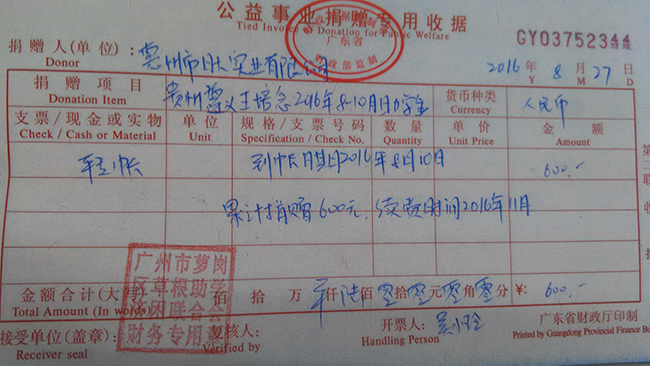 公益事业捐赠专用收据
Tied Invoice Donation for Public Welfare
广东省
财政部监制
GY03752344
捐赠人(单位):惠州市 实业有限公司
Donor
2016 年 8 月 27 日
Y M D
捐赠项目 贵州遵义王培念2016年8-10月助学金 货币种类 人民币
Donation Item Currency
支票/现金或实物 单位 规格/支票号码 数量 单价 金额
Check / Cash or Material Unit Specification / Check No. Quantity Unit Price Amount
转帐 到帐日期2016年8月10日 600.-
累计捐赠600元,续费时间2016年11月
金额合计(大写) 佰 拾 万 仟陆佰零拾零元零角零分 ¥: 600.-
Total Amount (In words)
广州市萝岗
区草根助学
济困联合会
财务专用章
接受单位(盖章): 复核人: 开票人:吴小玲 广东省财政厅印制
Receiver seal Verified by Handling Person Printed by Guangdong Provincial Finance Bu
第
联
收